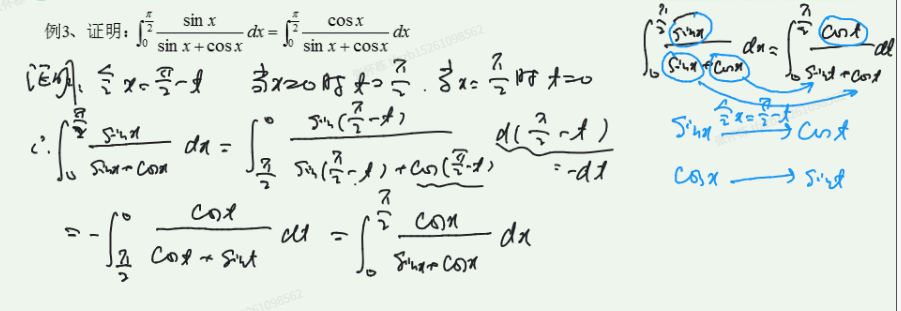 例3、证明：∫_0^{π/2} sin x/(sin x+cos x) dx = ∫_0^{π/2} cos x/(sin x+cos x) dx
证明：令x=π/2-t 当x=0时 t=π/2. 当x=π/2时 t=0
∴ ∫_0^{π/2} sinx/(sinx+cosx) dx = ∫_{π/2}^0 sin(π/2-t)/(sin(π/2-t)+cos(π/2-t)) d(π/2-t)
=-dt
= -∫_{π/2}^0 cost/(cost+sint) dt = ∫_0^{π/2} cosx/(sinx+cosx) dx
∫_0^{π/2} sinx/(sinx+cosx) dx = ∫_0^{π/2} cost/(sint+cost) dt
sinx 令x=π/2-t → cost
cosx → sint
15261098562